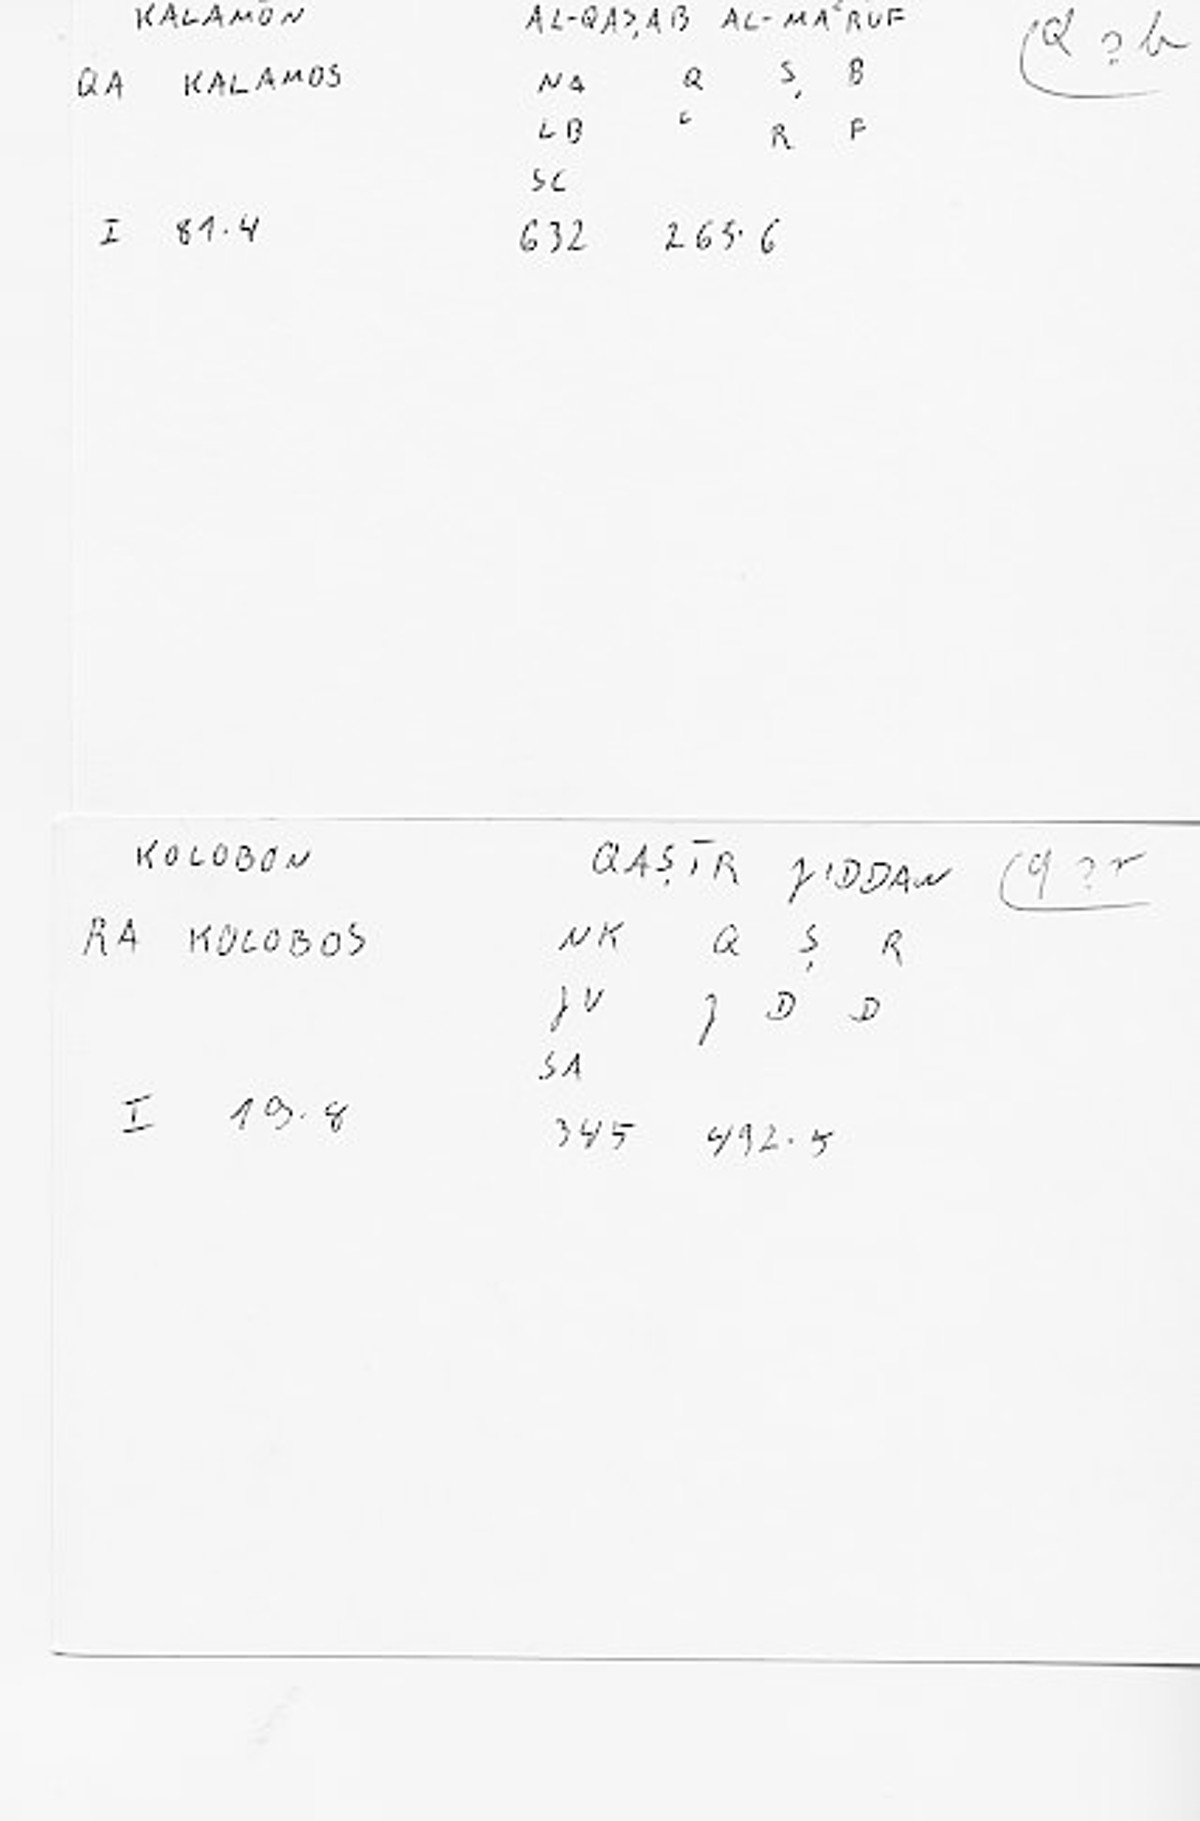 KALAMŌN AL-QAṢAB AL-MAʿRUF Q ṣ b
QA KALAMOS NA Q Ṣ B
LB ʿ R F
SC
I 81.4 632 265.6
KOLOBON QAṢĪR JIDDAN q ṣ r
RA KOLOBOS NK Q Ṣ R
JV J D D
SA
I 19.8 345 492.5